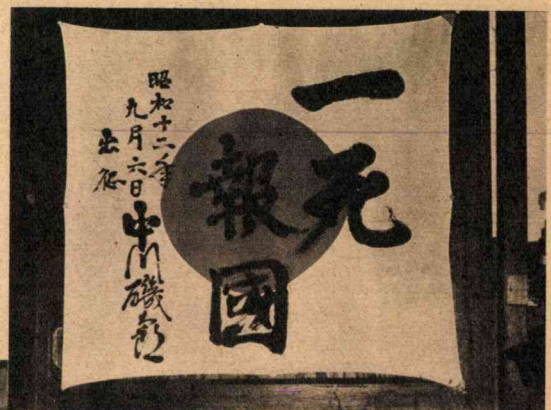 一死
報國
昭和十二年
九月六日
出征
中川磯郎